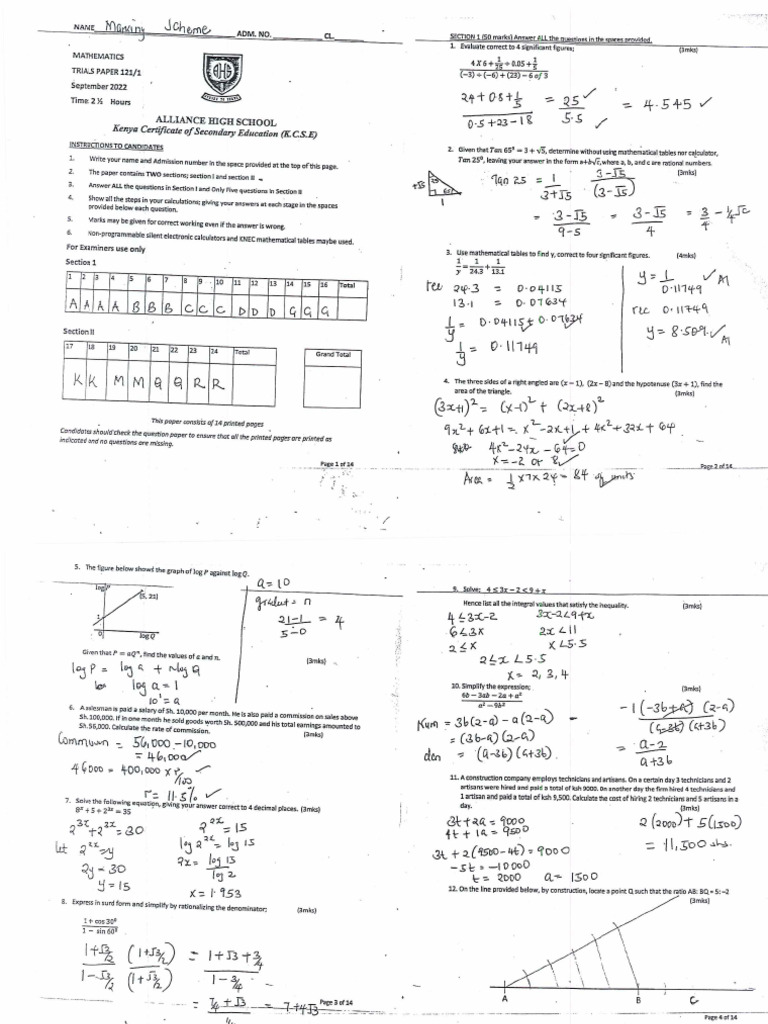 NAME Marking Scheme ADM. NO. CL.
MATHEMATICS
TRIALS PAPER 121/1
September 2022
Time 2 ½ Hours
ALLIANCE HIGH SCHOOL
Kenya Certificate of Secondary Education (K.C.S.E)
INSTRUCTIONS TO CANDIDATES
1. Write your name and Admission number in the space provided at the top of this page.
2. The paper contains TWO sections; section I and section II
3. Answer ALL the questions in Section I and Only Five questions in Section II
4. Show all the steps in your calculations; giving your answers at each stage in the spaces
provided below each question.
5. Marks may be given for correct working even if the answer is wrong.
6. Non-programmable silent electronic calculators and KNEC mathematical tables maybe used.
For Examiners use only
Section 1
1 2 3 4 5 6 7 8 9 10 11 12 13 14 15 16 Total
A A A A B B B C C C D D D G G G
Section II
17 18 19 20 21 22 23 24 Total
Grand Total
K K M M Q Q R R
This paper consists of 14 printed pages
Candidates should check the question paper to ensure that all the printed pages are printed as
indicated and no questions are missing.
Page 1 of 14
SECTION 1 (50 marks) Answer ALL the questions in the spaces provided.
1. Evaluate correct to 4 significant figures; (3mks)
4 X 6 + 1/25 ÷ 0.05 + 1/5
(−3) ÷ (−6) + (23) − 6 of 3
24 + 0.8 + 1/5 = 25 ✓ = 4.545 ✓
0.5 + 23 − 18 5.5 ✓
2. Given that Tan 65⁰ = 3 + √5, determine without using mathematical tables nor calculator,
Tan 25⁰, leaving your answer in the form a+b√c, where a, b, and c are rational numbers.
(3mks)
Tan 25 = 1/(3+√5) (3−√5)/(3−√5)
= (3−√5)/(9−5) = (3−√5)/4 = 3/4 − 1/4√5
3. Use mathematical tables to find y, correct to four significant figures. (4mks)
1/y = 1/24.3 + 1/13.1
rec 24.3 = 0.04115
13.1 = 0.07634
1/y = 0.04115 + 0.07634
1/y = 0.11749
y = 1/0.11749 ✓ A1
rec 0.11749
y = 8.509 ✓ A1
4. The three sides of a right angled are (x − 1), (2x − 8) and the hypotenuse (3x + 1), find the
area of the triangle. (3mks)
(3x+1)² = (x−1)² + (2x+8)²
9x² + 6x + 1 = x² − 2x + 1 + 4x² + 32x + 64
4x² − 24x − 64 = 0
x = −2 or 8 ✓
Area = 1/2 × 7 × 24 = 84 sq units
Page 2 of 14
5. The figure below shows the graph of log P against log Q.
log P
(5, 21)
1
0
log Q
a = 10
gradient = n
21−1/5−0 = 4
Given that P = aQⁿ, find the values of a and n.
(3mks)
log P = log a + n log Q
log a = 1
10¹ = a
6. A salesman is paid a salary of Sh. 10,000 per month. He is also paid a commission on sales above
Sh. 100,000. If in one month he sold goods worth Sh. 500,000 and his total earnings amounted to
Sh. 56,000. Calculate the rate of commission. (3mks)
Commission = 56,000 − 10,000
= 46,000 ✓
46000 = 400,000 × r/100
r = 11.5% ✓
7. Solve the following equation, giving your answer correct to 4 decimal places. (3mks)
8ˣ + 5 + 2³ˣ = 35
2³ˣ + 2³ˣ = 30
let 2²ˣ = y
2y = 30
y = 15
2²ˣ = 15
log 2²ˣ = log 15
2x = log 15/log 2
x = 1.953
8. Express in surd form and simplify by rationalizing the denominator; (3mks)
1 + cos 30⁰
1 − sin 60⁰
(1+√3/2)/(1−√3/2) (1+√3/2)/(1+√3/2) = (1+√3+3/4)/(1−3/4)
= 7/4 + √3 = 7+4√3
Page 3 of 14
9. Solve; 4 ≤ 3x − 2 < 9 + x
Hence list all the integral values that satisfy the inequality. (3mks)
4 ≤ 3x−2 3x−2<9+x
6 ≤ 3x 2x < 11
2 ≤ x x < 5.5
2 ≤ x < 5.5
x = 2, 3, 4
10. Simplify the expression; (3mks)
6b − 3ab − 2a + a²
a² − 9b²
Num = 3b(2−a) − a(2−a)
= (3b−a)(2−a)
den = (a−3b)(a+3b)
= −1(−3b+a)(2−a)/(a−3b)(a+3b)
= a−2/a+3b
11. A construction company employs technicians and artisans. On a certain day 3 technicians and 2
artisans were hired and paid a total of ksh 9000. On another day the firm hired 4 technicians and
1 artisan and paid a total of ksh 9,500. Calculate the cost of hiring 2 technicians and 5 artisans in a
day. (3mks)
3t + 2a = 9000
4t + 1a = 9500
3t + 2(9500−4t) = 9000
−5t = −10000
t = 2000 a = 1500
2(2000) + 5(1500)
= 11,500 shs.
12. On the line provided below, by construction, locate a point Q such that the ratio AB: BQ = 5:−2
(3mks)
A B C
Page 4 of 14